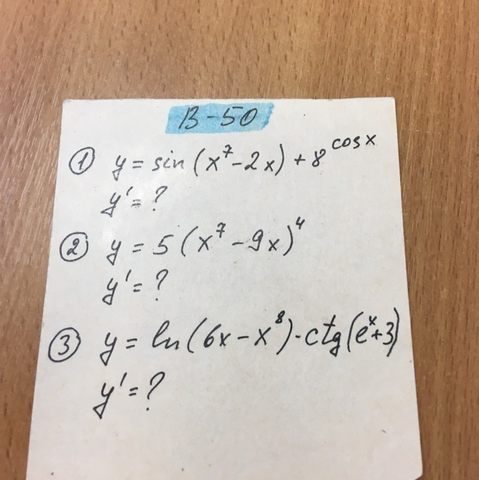 B-50
① y = sin(x⁷-2x)+8^cosx
y' = ?
② y = 5(x⁷-9x)⁴
y' = ?
③ y = ln(6x-x⁸)·ctg(eˣ+3)
y' = ?